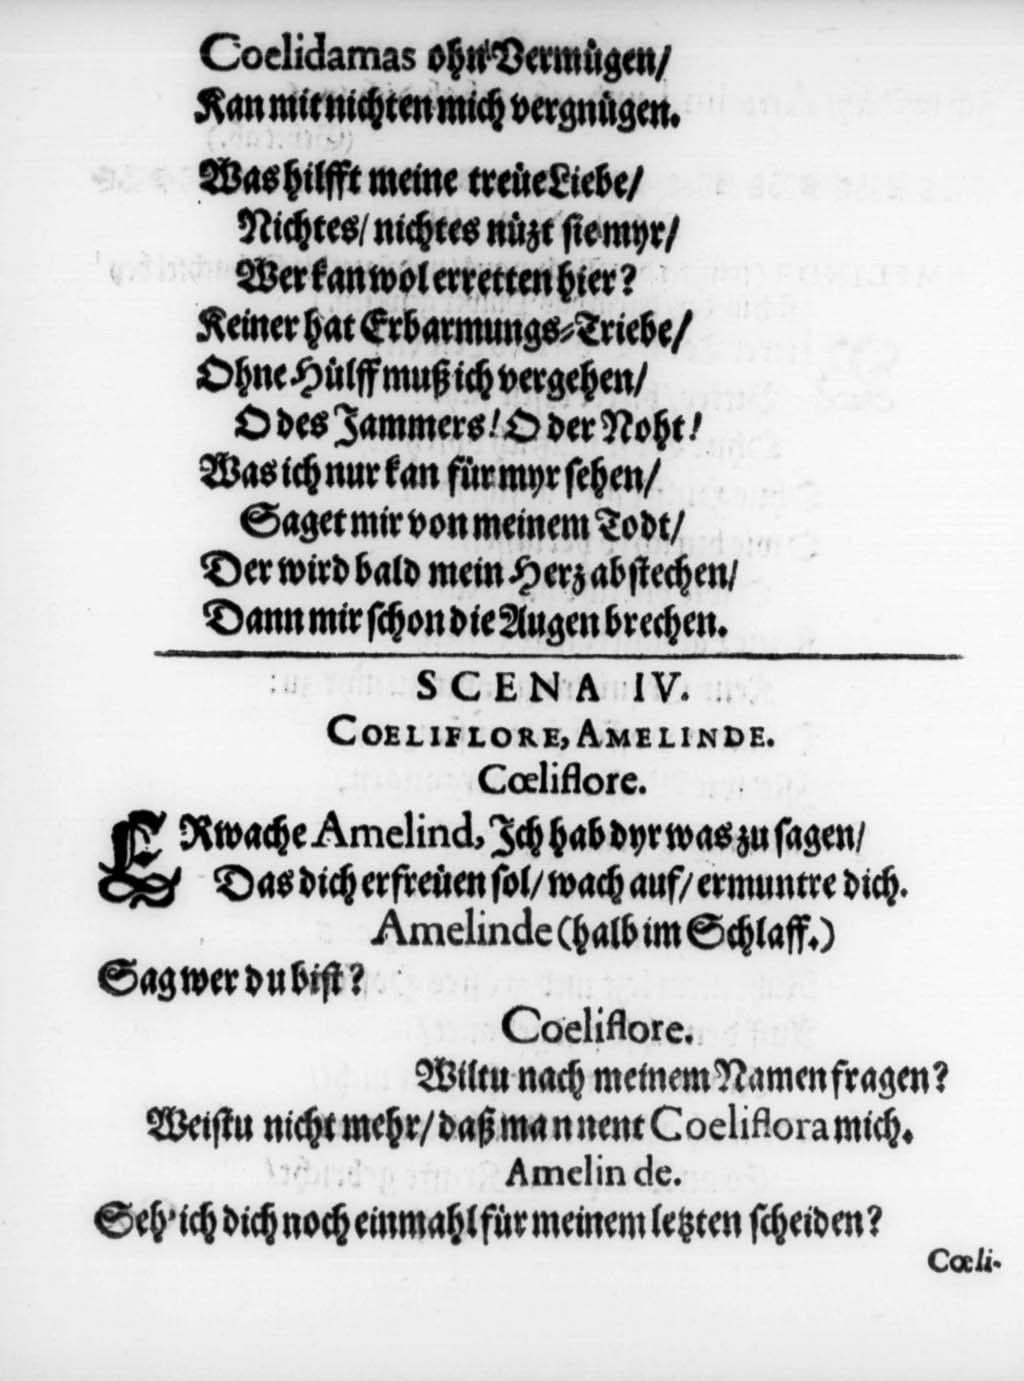 Coelidamas ohn' Vermügen/
Kan mit nichten mich vergnügen.
Was hilfft meine treüe Liebe/
Nichtes/ nichtes nüzt sie myr/
Wer kan wol erretten hier?
Keiner hat Erbarmungs-Triebe/
Ohne Hülff muß ich vergehen/
O des Jammers! O der Noht!
Was ich nur kan für myr sehen/
Saget mir von meinem Todt/
Der wird bald mein Herz abstechen/
Dann mir schon die Augen brechen.
SCENA IV.
COELIFLORE, AMELINDE.
Cœliflore.
ERwache Amelind, Ich hab dyr was zu sagen/
Das dich erfreüen sol/ wach auf/ ermuntre dich.
Amelinde (halb im Schlaff.)
Sag wer du bist?
Coeliflore.
Wiltu nach meinem Namen fragen?
Weistu nicht mehr/ daß man nent Coeliflora mich.
Amelinde.
Seh' ich dich noch einmahl für meinem letzten scheiden?
Cœli-